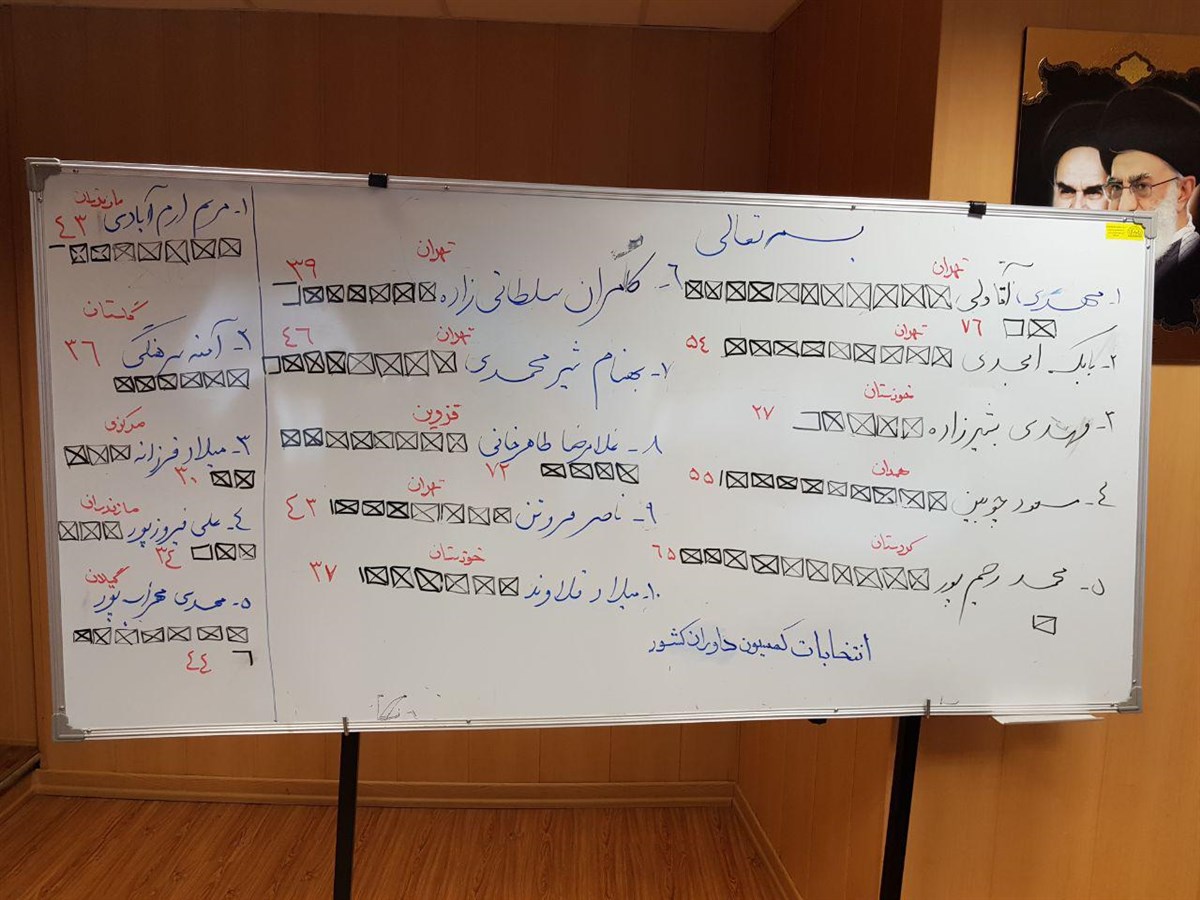 بسمه تعالی
تهران
۱- مهدی آقاولی
۷۶
تهران
۲- بابک امجدی ۵۴
خوزستان
۳- مهدی بشیرزاده ۲۷
همدان
۴- مسعود چوبین ۵۵
کردستان
۵- محمد رحیم پور ۶۵
تهران
۶- کامران سلطانی زاده ۳۹
تهران
۷- بهنام شیرمحمدی ۴۶
قزوین
۸- غلامرضا طاهرخانی
۷۲
تهران
۹- ناصر فروتن ۴۳
خوزستان
۱۰- میلاد قلاوند ۳۷
انتخابات کمیسیون داوران کشور
مازندران
۱- مریم ارم آبادی ۴۳
گلستان
۲- آمنه سرهنگی ۳۶
مرکزی
۳- میلاد فرزانه
۳۰
مازندران
۴- علی فیروزپور
۳۴
گیلان
۵- مهدی محراب پور
۴۴